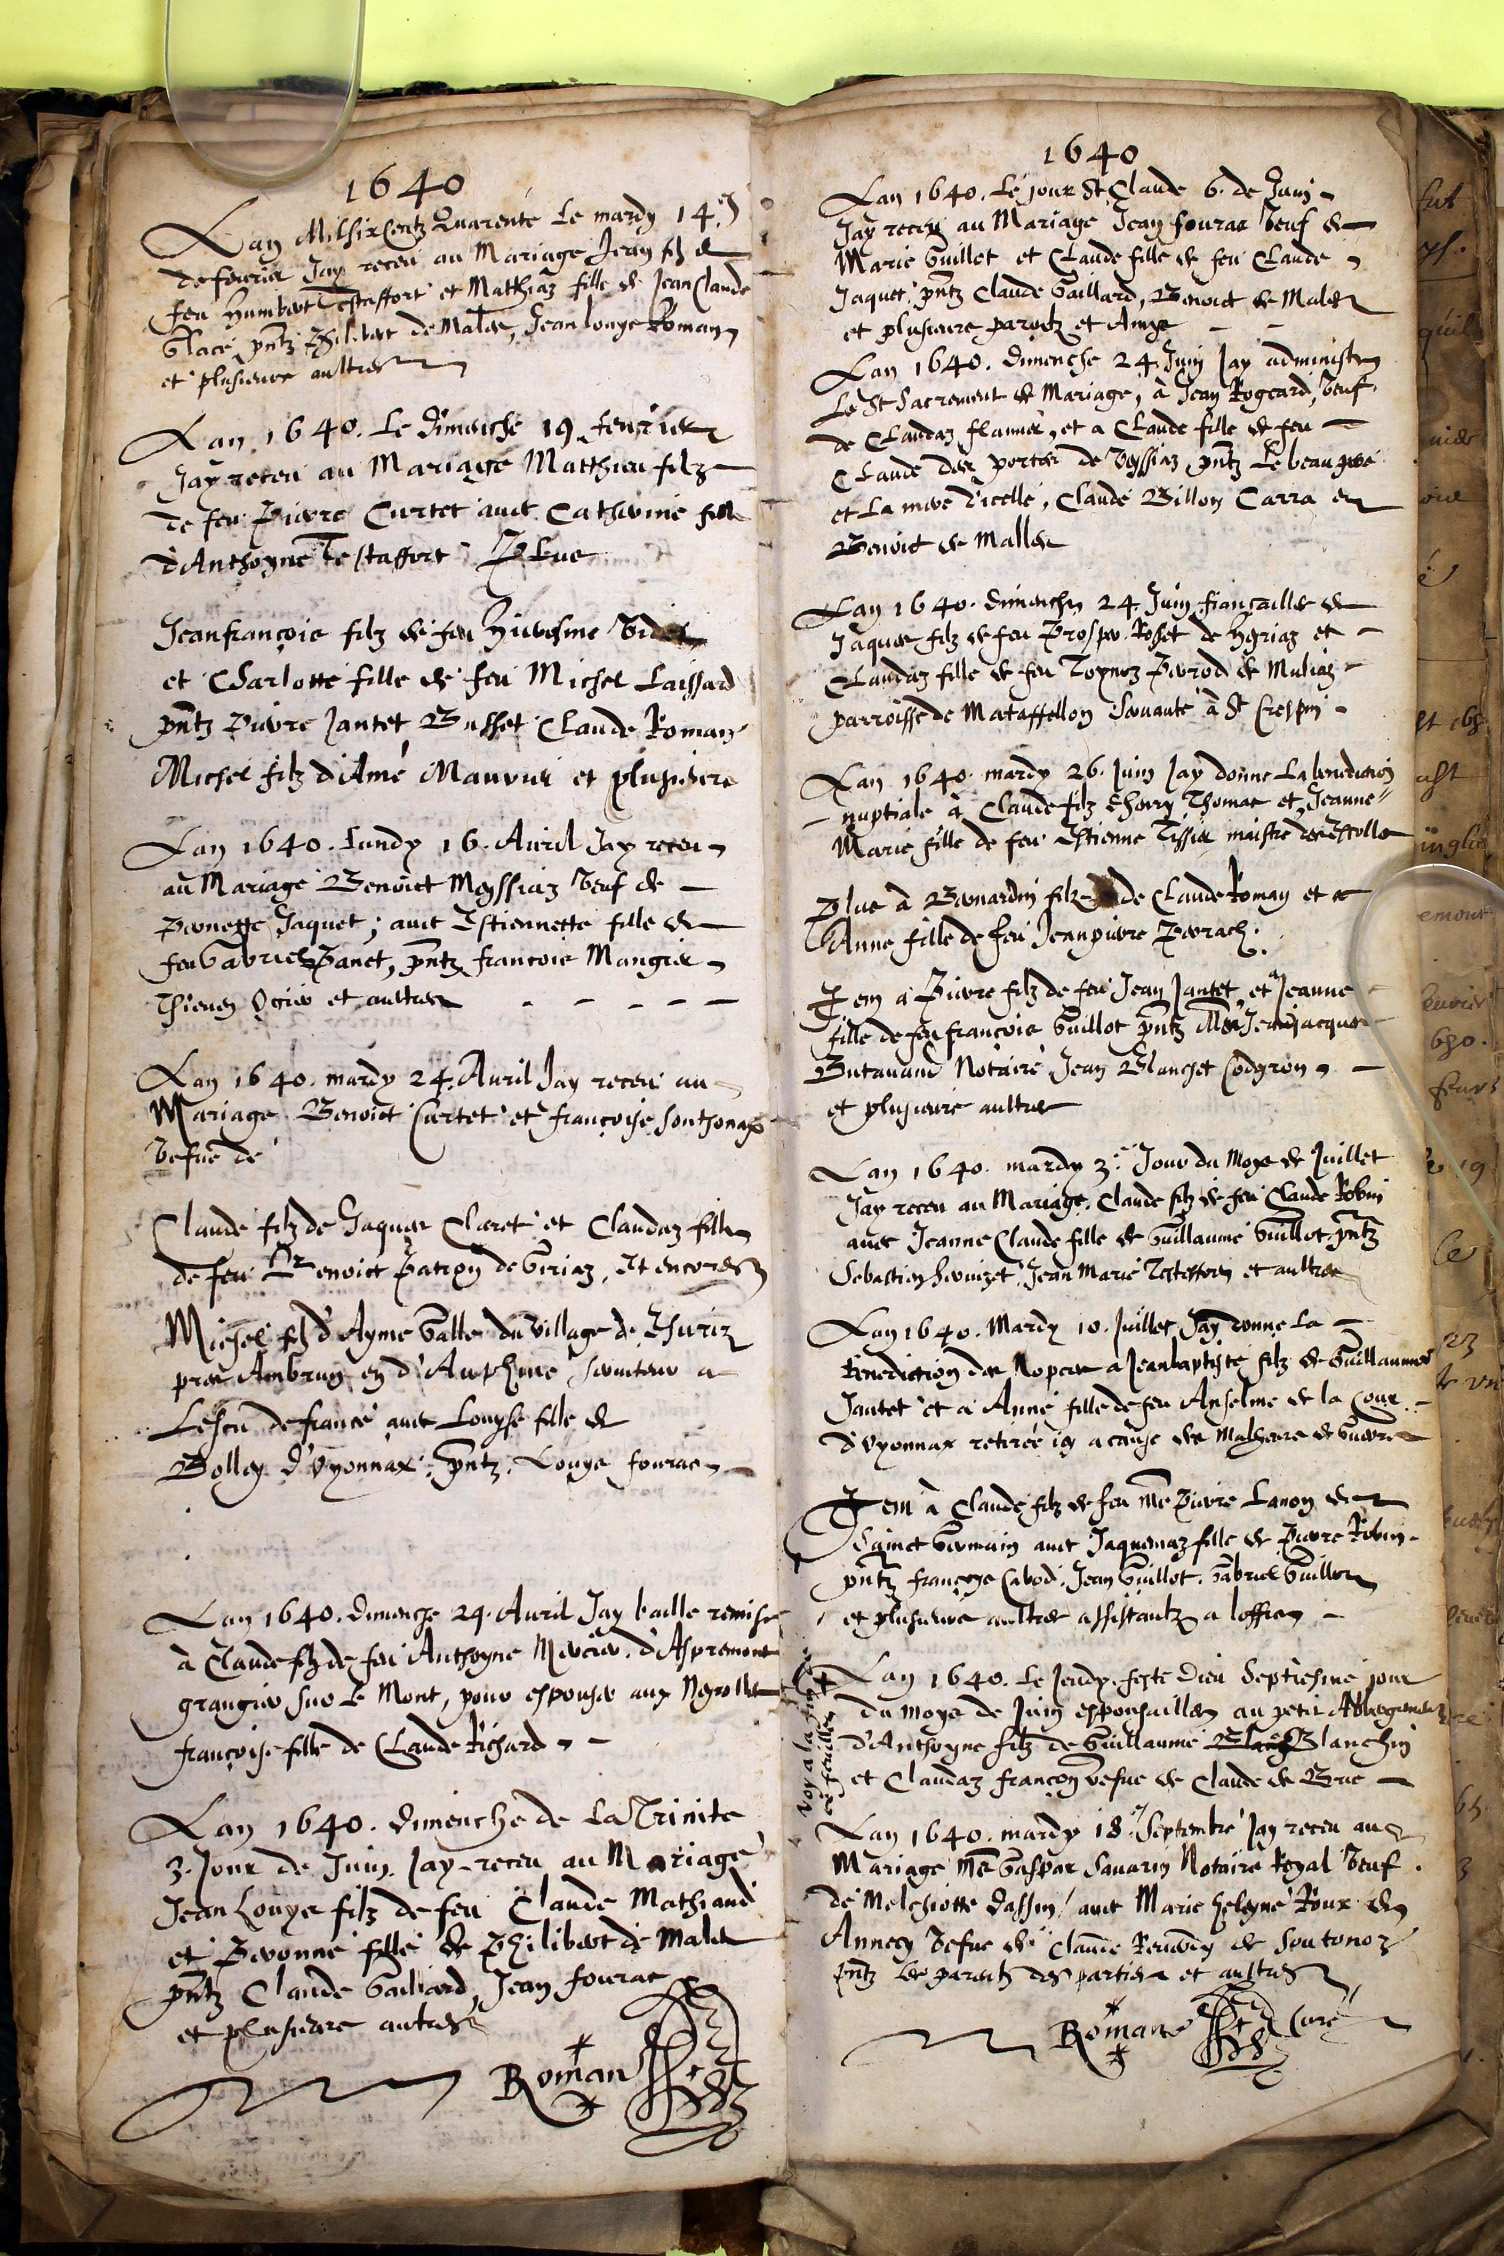 1640
Lan Mil six Centz Quarente Le mardy 14.e
de feurier Jay receu au Mariage Jean filz de
feu Humbert Testaffort et Matthiaz fille de Jean Claude
Glace pntz Philibert de Males, Jean louys Roman
et plusieurs aultres
Lan 1640. Le Dimenche 19 feurier
Jay receu au Mariage Matthieu filz
de feu Pierre Curtet auec Catherine fille
d'Anthoyne Testaffort Plus
Jeanfrançois filz de feu
et Charlotte fille de feu Michel Laissard
pntz Pierre Jantet Busset Claude Roman
Michel filz d'Amé Mauuui et plusieurs
Lan 1640. Lundy 16. Auril Jay receu
au Mariage Benoict Meyssiaz Veuf de
Pernette Jaquet; auec Estiennette fille de
feu Gabriel Panet, pntz francois Mangier
Thienen Ogier et aultres
Lan 1640. mardy 24. Auril Jay receu au
Mariage Benoict Curtet et françoise Sonthonax
Vefue de
Claude filz de Jaques Cleret et Claudaz fille
de feu Benoict Patron de Giriaz, Et encores
Michel filz d'Ayme Galle du village de
pres Ambrun en d'Auphine seruiteur a
Lescu de france auec Louyse fille de
Bolley d'oyonnax. pntz. Louys fouras
Lan 1640. dimenche 29. Auril Jay baille remise
à Claude filz de feu Anthoyne Mercier. d'Aspremont
grangier sur Le Mont, pour espouser aux Neyrolles
françoise fille de Claude Richard
Lan 1640. dimenche de La Trinite
3. Jour de Juin. Jay receu au Mariage
Jean Louys filz de feu Claude Mathiaud
et Peronne fille de Philibert de Males
pntz Claude Gailliard, Jean fouras
et plusieurs autres
Roman
1640
Lan 1640. Le jour St. Claude 6. de Juin
Jay receu au Mariage Jean fouras Veuf de
Marie Guillot et Claude fille de feu Claude
Jaquet. pntz Claude Gaillard, Benoict de Males
et plusieurs parentz et Amys
Lan 1640. dimenche 24. Juin Jay administre
Le St Sacrement de Mariage, à Jean Rogeard, Veuf
de Claudaz flammie, et a Claude fille de feu
Claude des portes de Veyssiaz pntz Le beau pere
et La mere d'icelle, Claude Billon Carra et
Benoict de Malles
Lan 1640. dimenche 24. Juin fiançailles de
Jaques filz de feu Prosper Rosset de Hgriaz et
Claudaz fille de feu Toynoz Perrod de Muliaz
parroisse de Mataffellon seruante à St Crespin
Lan 1640. mardy 26. Juin Jay donne La benediction
nuptiale à Claude filz Thomas et Jeanne
Marie fille de feu Estienne Tissier maistre des Escolles
Plus à Bernardin filz de Claude Roman et a
Anne fille de feu Jeanpierre Perrach.
Jtem a Pierre filz de feu Jean Jantet et Jeanne
fille de feu francois Guillot pntz Mre Jeanjacques
Butauand Notaire Jean Blanchet Codgron
et plusieurs aultres
Lan 1640. mardy 3.e Jour du Moys de Juillet
Jay receu au Mariage. Claude filz de feu Claude Robin
auec Jeanne Claude fille de Guillaume Guillot. pntz
Sebastien Jean Marie Testeffort et aultres
Lan 1640. Mardy 10. Juillet Jay donne La
Benediction des Nopces a Jeanbaptiste filz de Guillaume
Jantet et a Anne fille de feu Anselme de la Cour
d'Oyonnax retirée icy a cause des Malheurs de Guerre
Jtem à Claude filz de feu Me Pierre Lanon de
Sainct Germain auec Jaquemaz fille de Pierre Robin
pntz françoys Cabod. Jean Guillot. Gabriel Guillot
et plusieurs aultres assistantz a loffice
Voy a la fin de ce feuillet
Lan 1640. Le Jeudy. feste Dieu Septiesme jour
du moys de Juin espousailles au petit Abbergement
d'Anthoyne filz de Guillaume Blanchin
et Claudaz françon vefue de Claude de Brie
Lan 1640. mardy 18.e Septembre Jay receu au
Mariage Me Gaspar Sauarin Notaire Royal Veuf
de Melchiotte Dassin, auec Marie Heleyne Roux de
Annecy Vefue de Claude de Soutonoz
pntz Les parentz des parties et aultres
Romans Curé